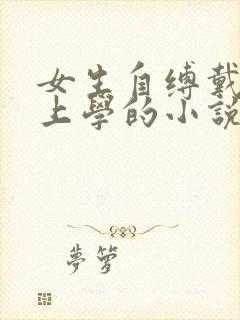 女生自缚戴
上學的小説
夢箩